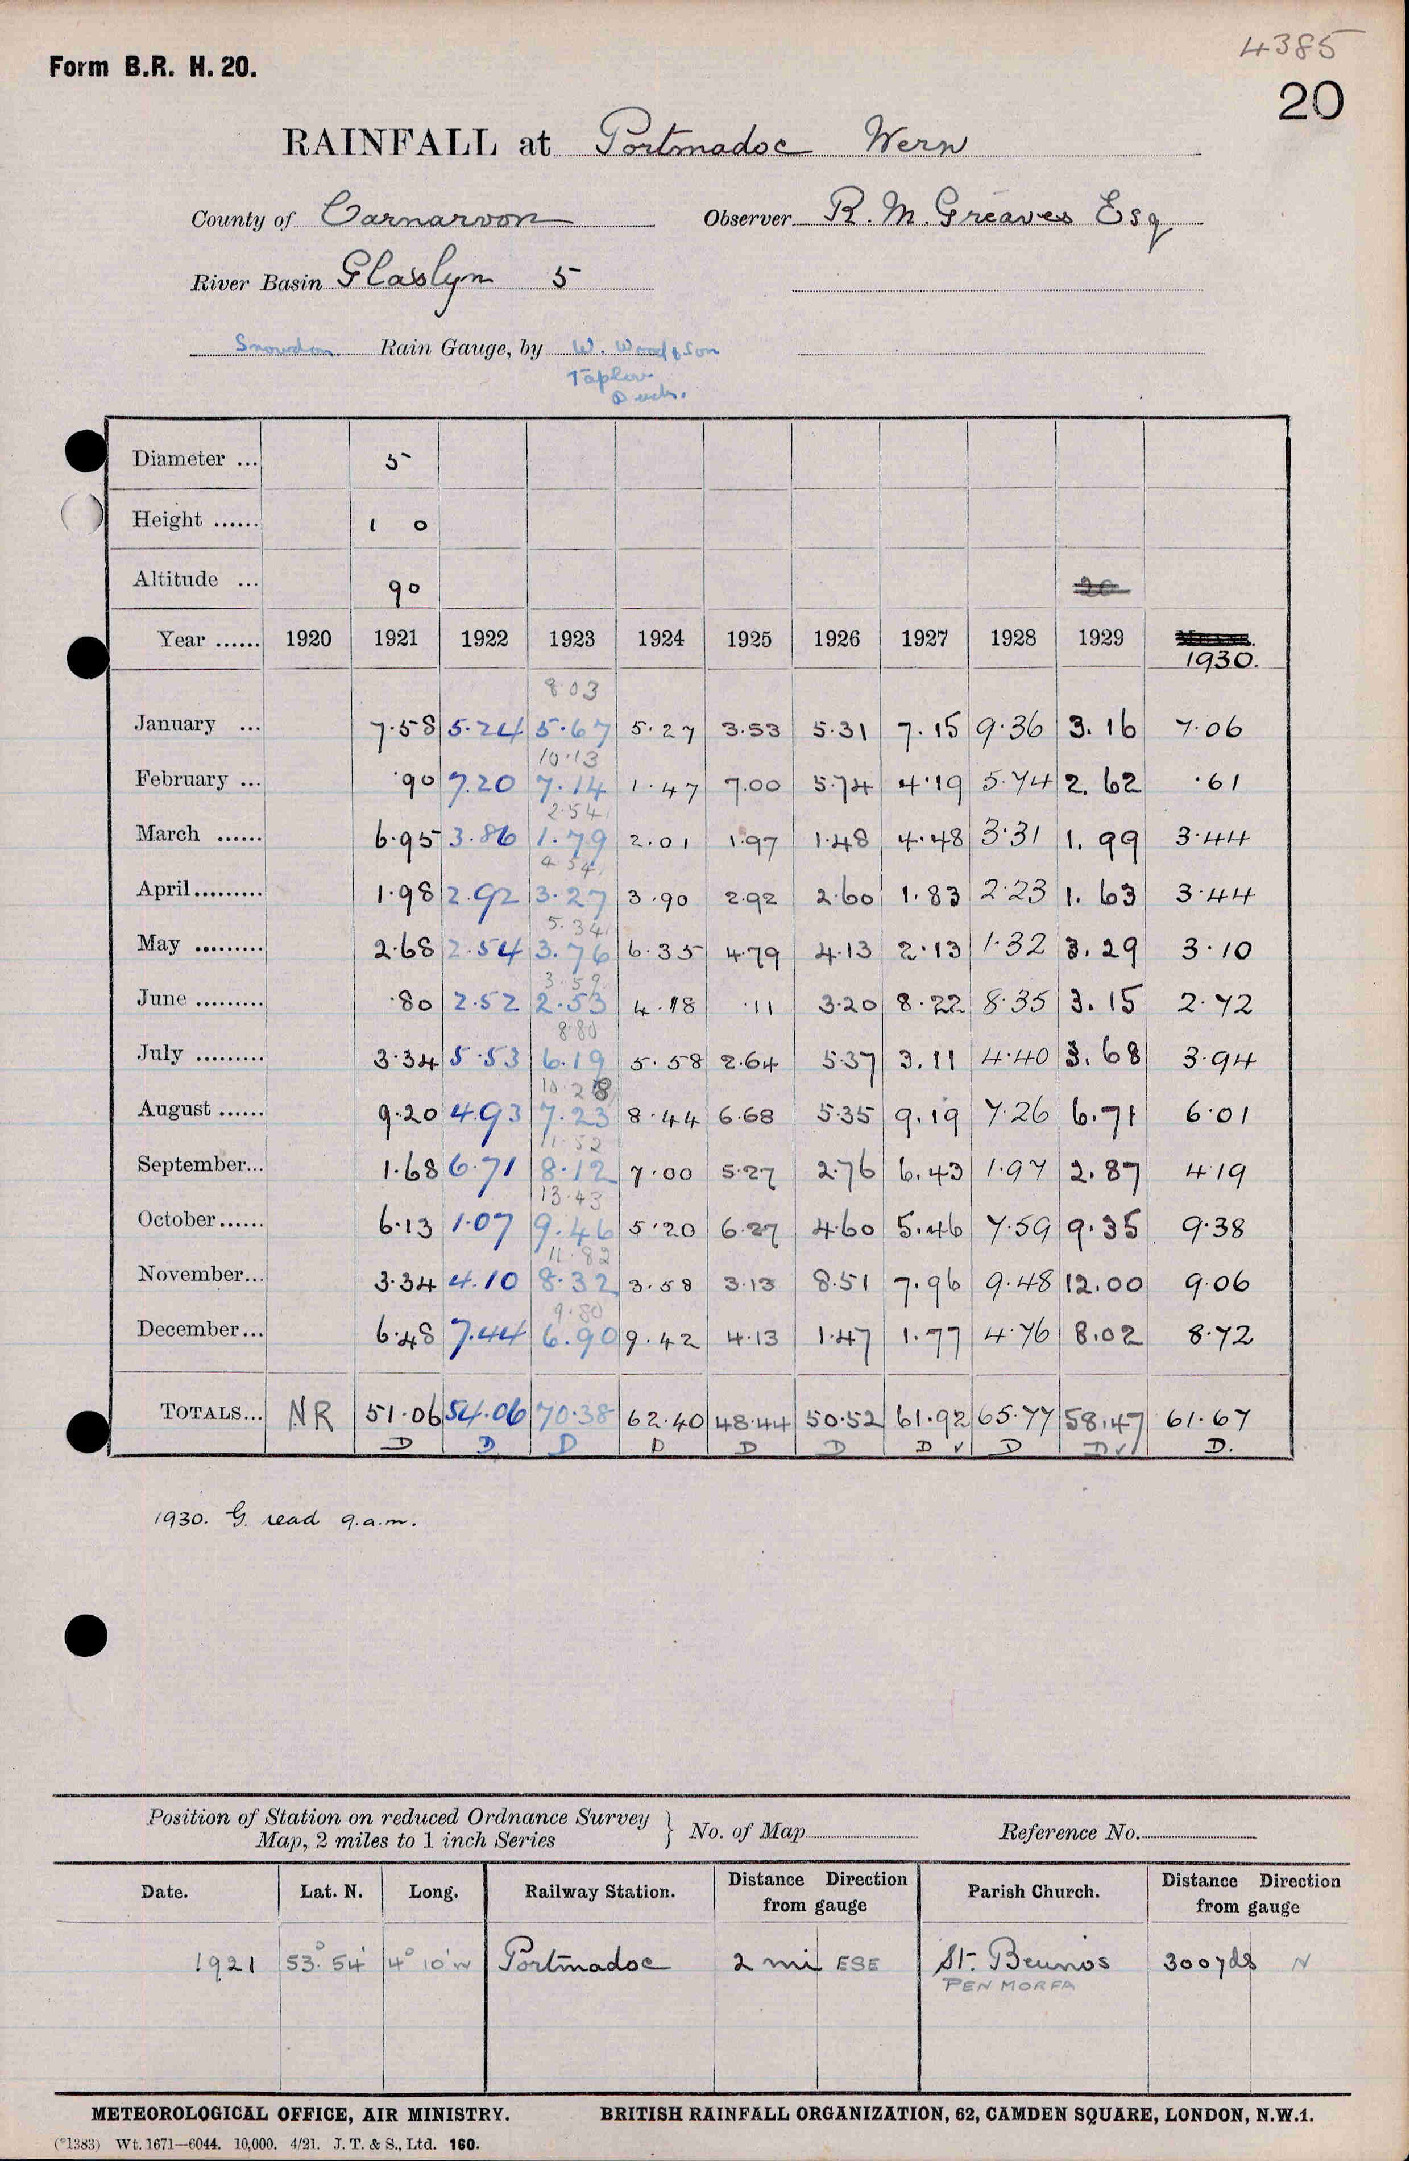 4385
Form B.R. H. 20.
20
RAINFALL at Portmadoc Wern
County of Carnarvon Observer R. M. Greaves Esq
River Basin Glaslyn 5
Snowdon Rain Gauge, by W. Wood & Son
Taplow
Bucks.
Diameter ... 5
Height ...... 1 0
Altitude ... 90 20
Year ...... 1920 1921 1922 1923 1924 1925 1926 1927 1928 1929 1930.
8.03
January ... 7.58 5.24 5.67 5.27 3.53 5.31 7.15 9.36 3.16 7.06
10.13
February ... .90 7.20 7.14 1.47 7.00 5.74 4.19 5.74 2.62 .61
2.54
March ...... 6.95 3.86 1.79 2.01 1.97 1.48 4.48 3.31 1.99 3.44
4.54
April......... 1.98 2.92 3.27 3.90 2.92 2.60 1.83 2.23 1.63 3.44
5.34
May ......... 2.68 2.54 3.76 6.35 4.79 4.13 2.13 1.32 3.29 3.10
3.59
June ......... .80 2.52 2.53 4.18 .11 3.20 8.22 8.35 3.15 2.72
8.80
July ......... 3.34 5.53 6.19 5.58 2.64 5.37 3.11 4.40 3.68 3.94
10.28
August ...... 9.20 4.93 7.23 8.44 6.68 5.35 9.19 7.26 6.71 6.01
11.52
September... 1.68 6.71 8.12 7.00 5.27 2.76 6.43 1.97 2.87 4.19
13.43
October...... 6.13 1.07 9.46 5.20 6.27 4.60 5.46 7.59 9.35 9.38
11.82
November... 3.34 4.10 8.32 3.58 3.13 8.51 7.96 9.48 12.00 9.06
9.80
December... 6.48 7.44 6.90 9.42 4.13 1.47 1.77 4.76 8.02 8.72
TOTALS... NR 51.06 54.06 70.38 62.40 48.44 50.52 61.92 65.77 58.47 61.67
D D D D D D D v D D v D.
1930. G. read 9.a.m.
Position of Station on reduced Ordnance Survey
Map, 2 miles to 1 inch Series } No. of Map Reference No.
Date. Lat. N. Long. Railway Station. Distance Direction from gauge Parish Church. Distance Direction from gauge
1921 53° 54' 4° 10' W Portmadoc 2 mi ESE St. Beunos 300 yds N
PEN MORFA
METEOROLOGICAL OFFICE, AIR MINISTRY. BRITISH RAINFALL ORGANIZATION, 62, CAMDEN SQUARE, LONDON, N.W.1.
(*1383) Wt. 1671—6044. 10,000. 4/21. J. T. & S., Ltd. 160.